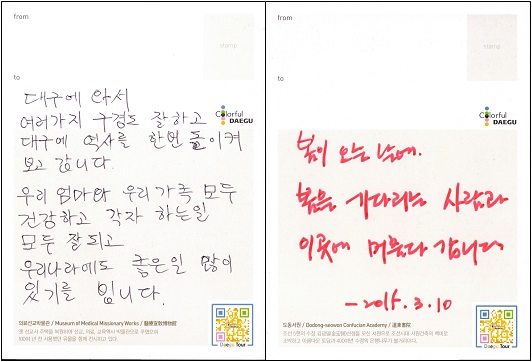 from
stamp
to
Colorful
DAEGU
대구에 와서
여러가지 구경도 잘하고
대구에 역사를 한번 돌이켜
보고 갑니다.
우리 엄마와 우리가족 모두
건강하고 각자 하는일
모두 잘되고
우리나라에도 좋은일 많이
있기를 빕니다.
의료선교박물관 / Museum of Medical Missionary Works / 醫療宣敎博物館
Daegu Tour
from
stamp
to
Colorful
DAEGU
봄이 오는 날에.
봄을 기다리는 사람과
이곳에 머물다 갑니다
-2015.3.10
도동서원 / Dodong-seowon Confucian Academy / 道東書院
Daegu Tour